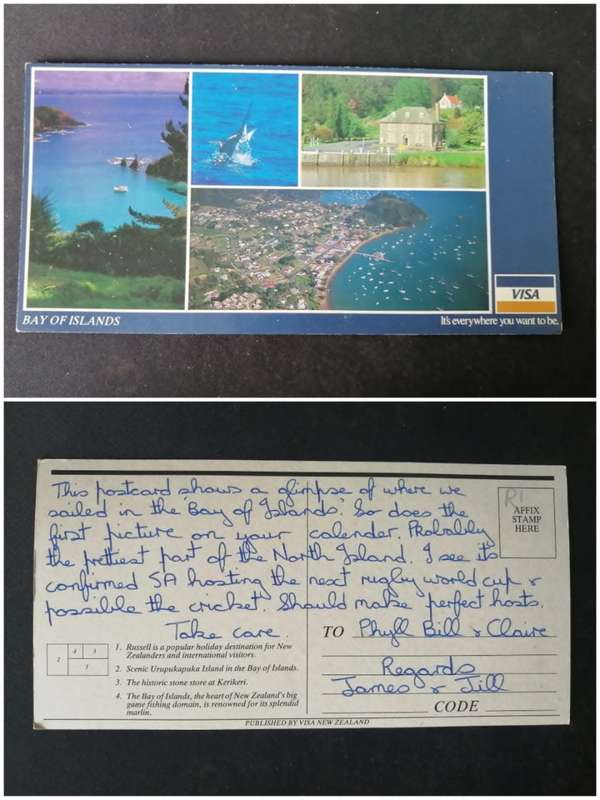 VISA
BAY OF ISLANDS
It's everywhere you want to be.
This postcard shows a glimpse of where we
sailed in the 'Bay of Islands'. So does the
first picture on your calender. Probably
the prettiest part of the North Island. I see its
confirmed SA hosting the next rugby world cup &
possible the cricket. Should make perfect hosts.
Take care.
R1
AFFIX
STAMP
HERE
2 4 3
1
1. Russell is a popular holiday destination for New
Zealanders and international visitors.
2. Scenic Urupukapuka Island in the Bay of Islands.
3. The historic stone store at Kerikeri.
4. The Bay of Islands, the heart of New Zealand's big
game fishing domain, is renowned for its splendid
marlin.
TO Phyll Bill & Claire
Regards
James & Jill
CODE
PUBLISHED BY VISA NEW ZEALAND